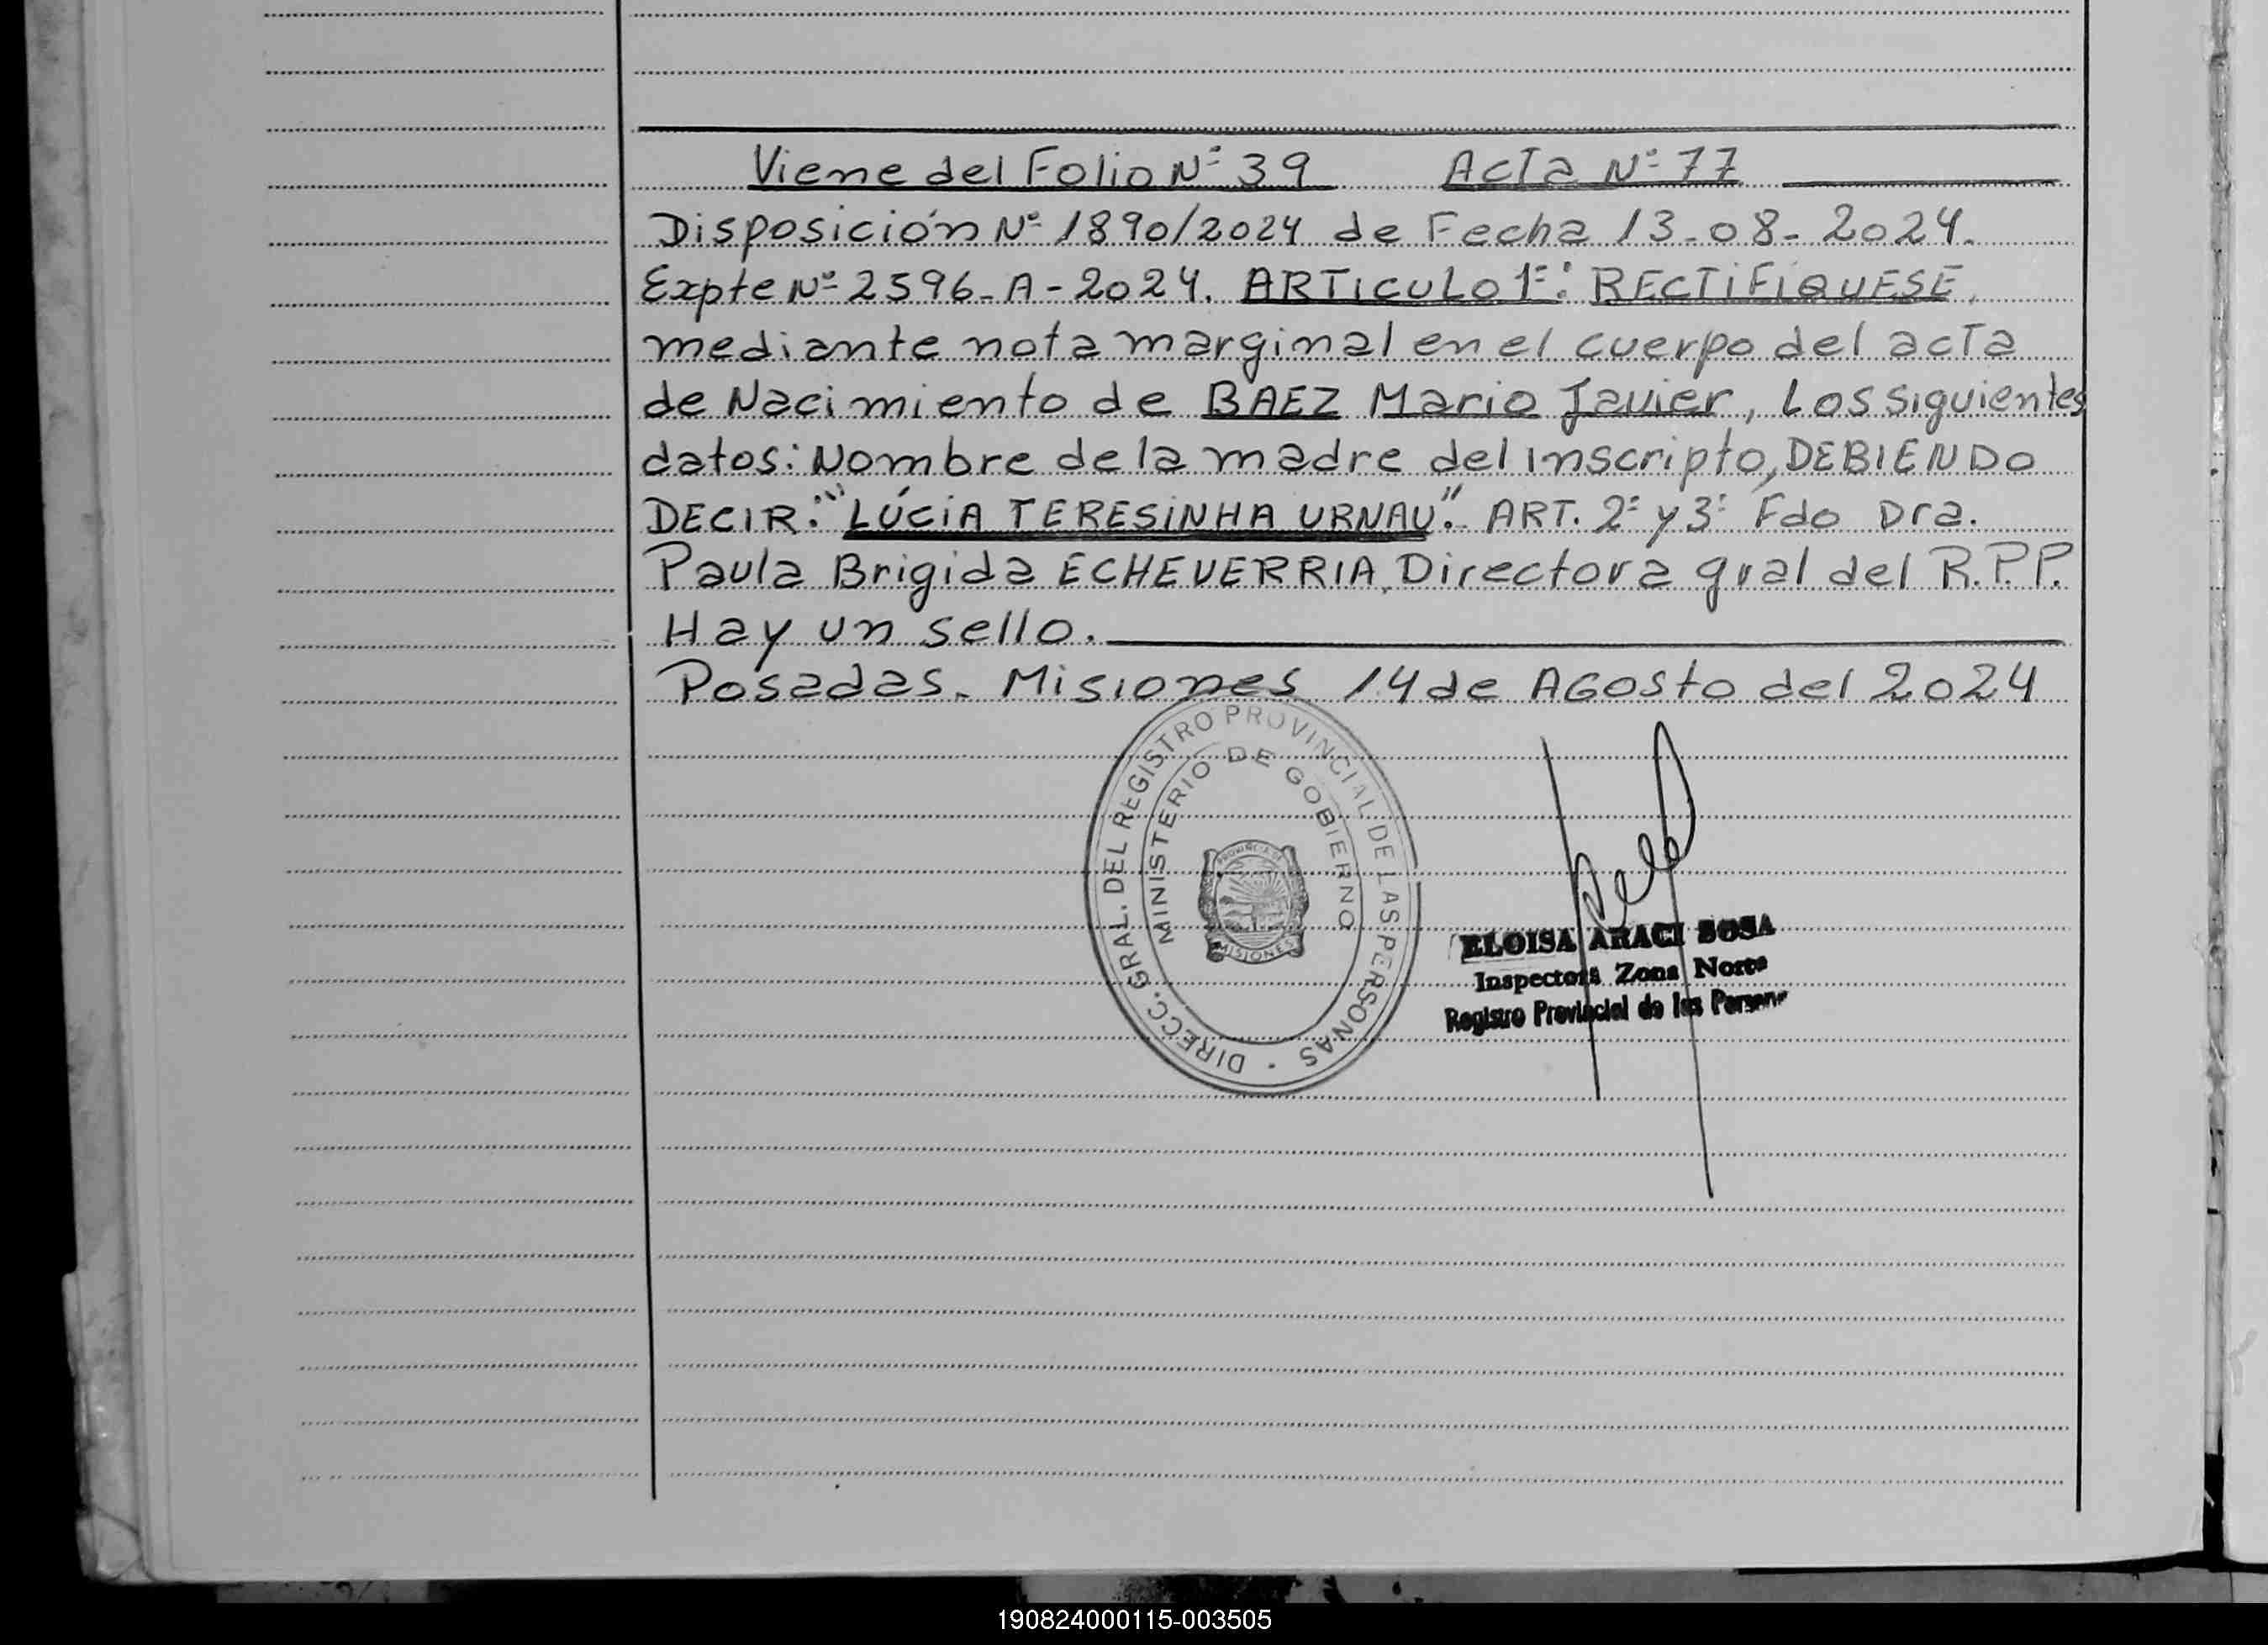 Viene del Folio Nº 39 Acta Nº 77
Disposición Nº 1890/2024 de Fecha 13-08-2024.
Expte Nº 2596-A-2024. ARTICULO 1º: RECTIFIQUESE,
mediante nota marginal en el cuerpo del acta
de Nacimiento de BAEZ Mario Javier, Los siguientes
datos: Nombre de la madre del inscripto, DEBIENDO
DECIR: "LÚCIA TERESINHA URNAU". ART. 2º y 3º Fdo Dra.
Paula Brigida ECHEVERRIA, Directora gral del R.P.P.
Hay un sello.
Posadas. Misiones 14 de Agosto del 2024
DIRECC. GRAL. DEL REGISTRO PROVINCIAL DE LAS PERSONAS
MINISTERIO DE GOBIERNO
PROVINCIA DE
MISIONES
ELOISA ARACI SOSA
Inspectora Zona Norte
Registro Provincial de las Persona
190824000115-003505